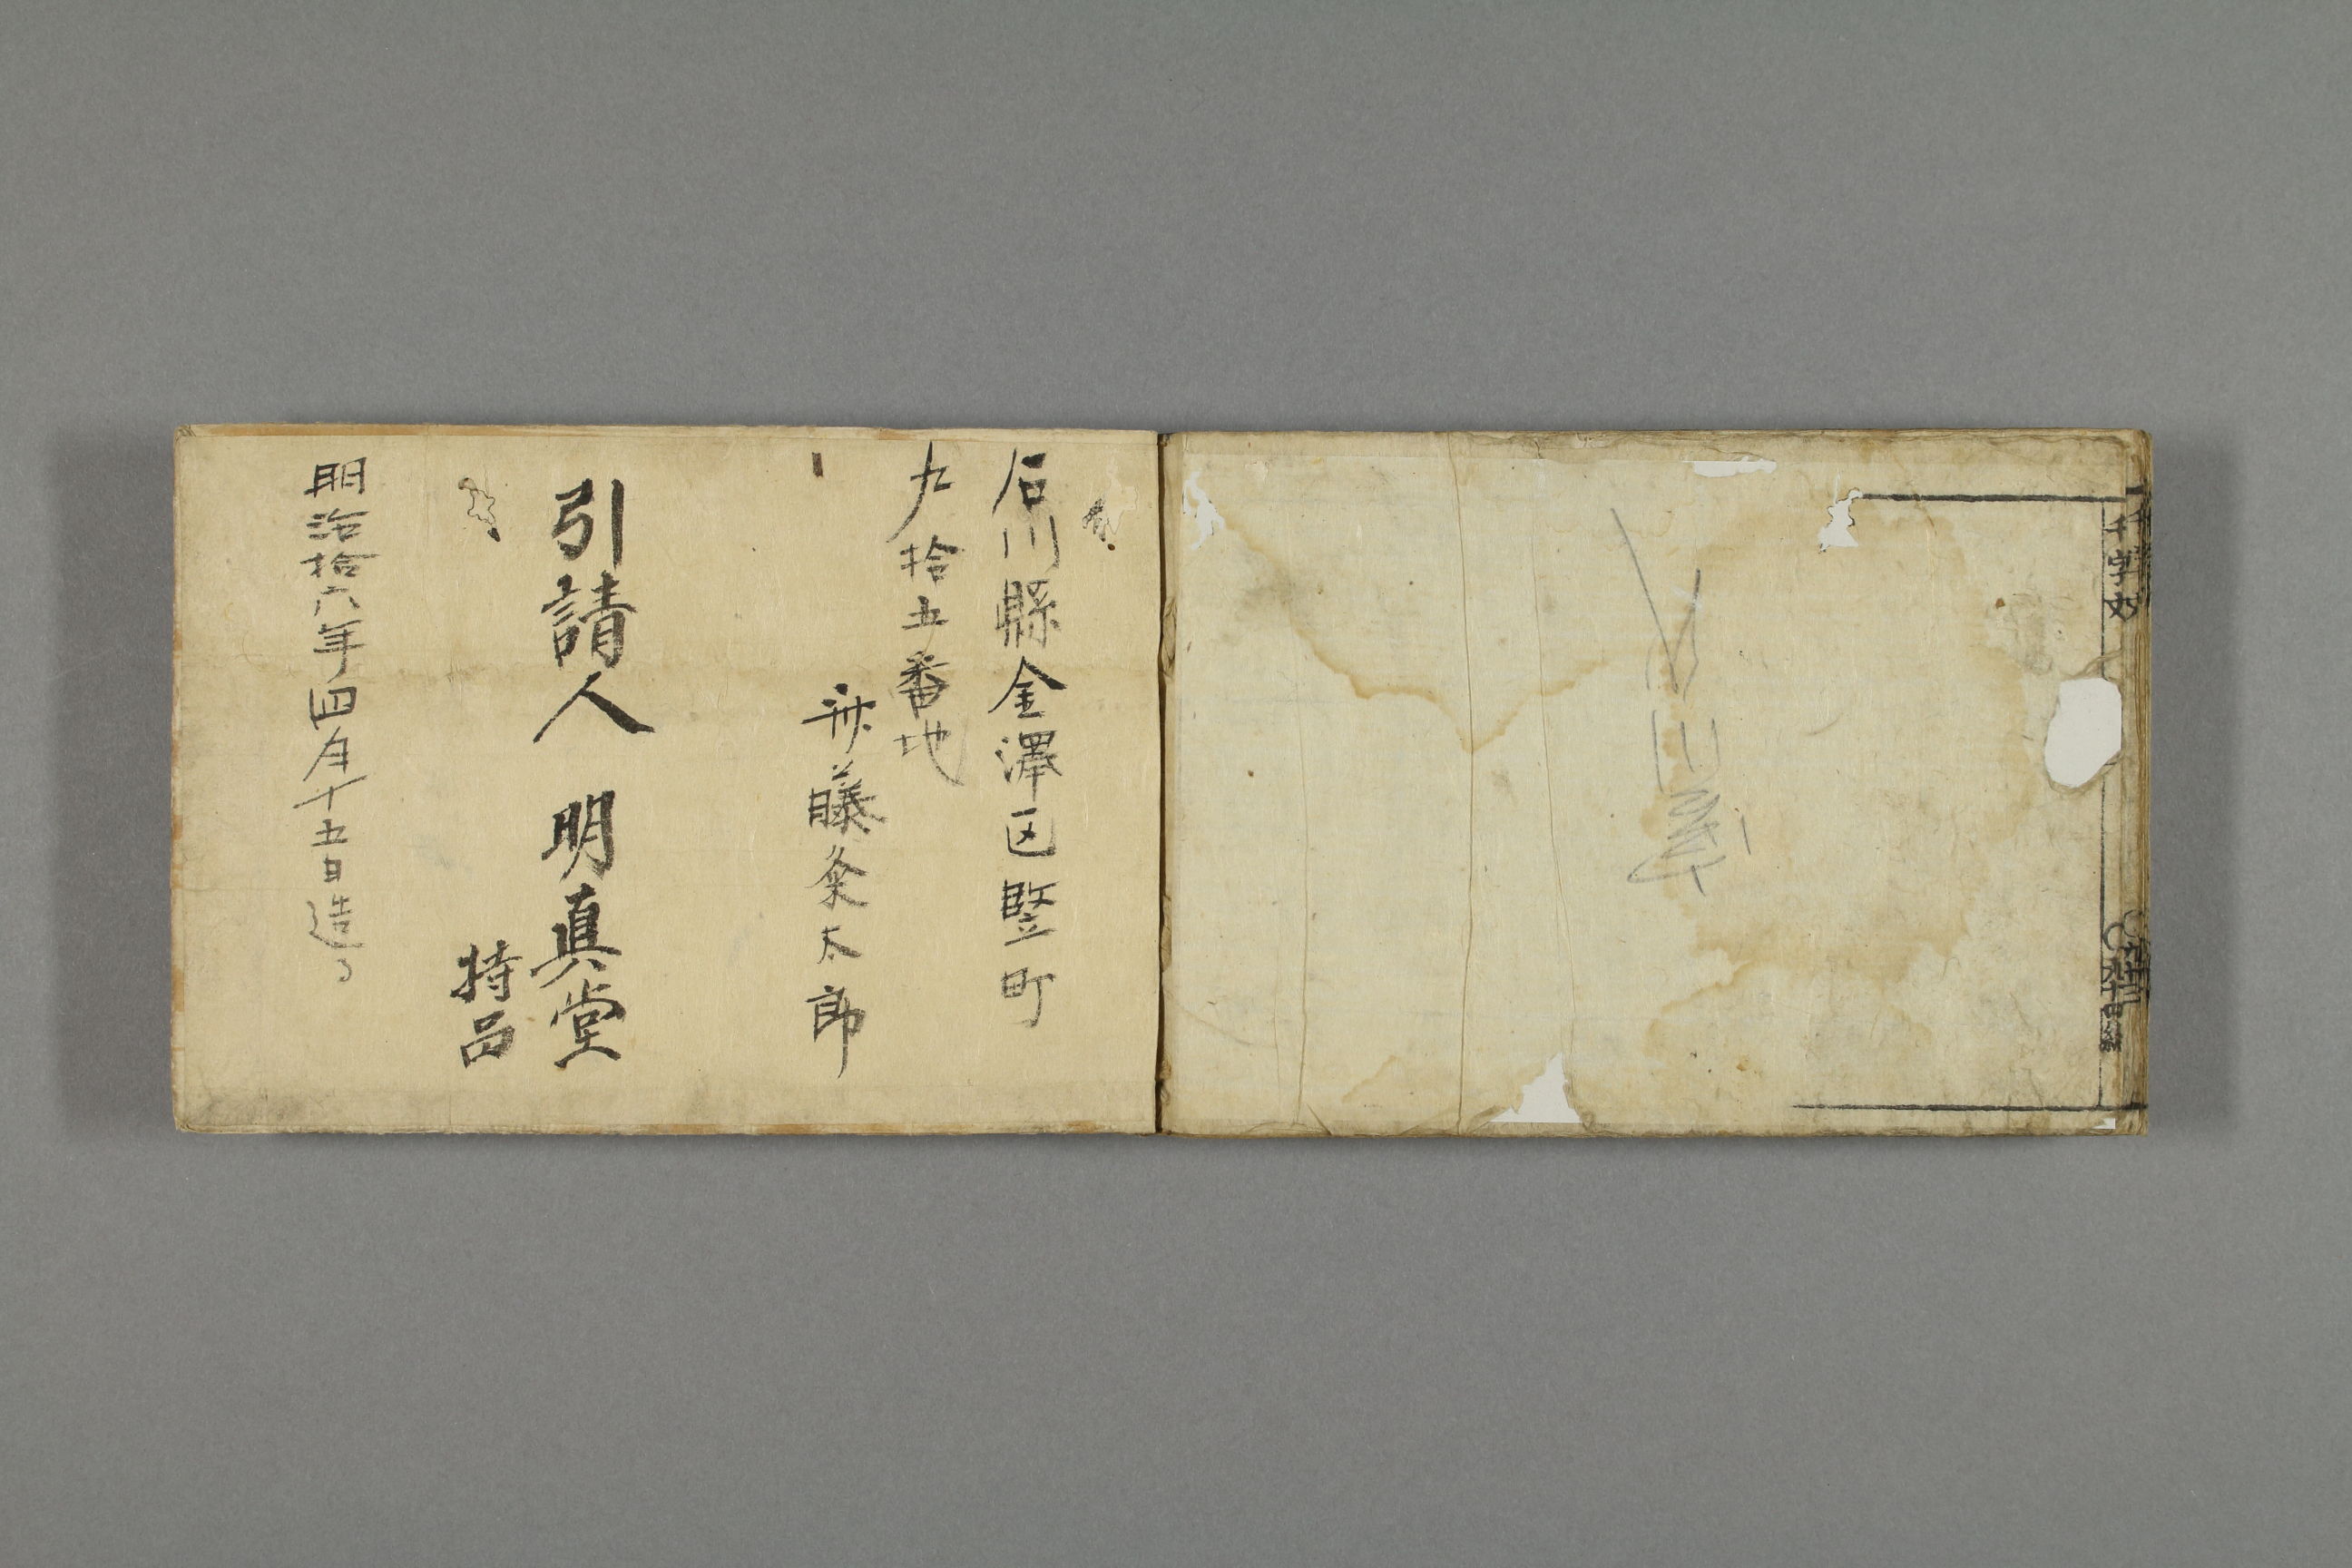 千字文
石川縣金澤区竪町
九拾五番地
藤粂太郎
引請人 明真堂
持品
明治拾六年四月十五日造